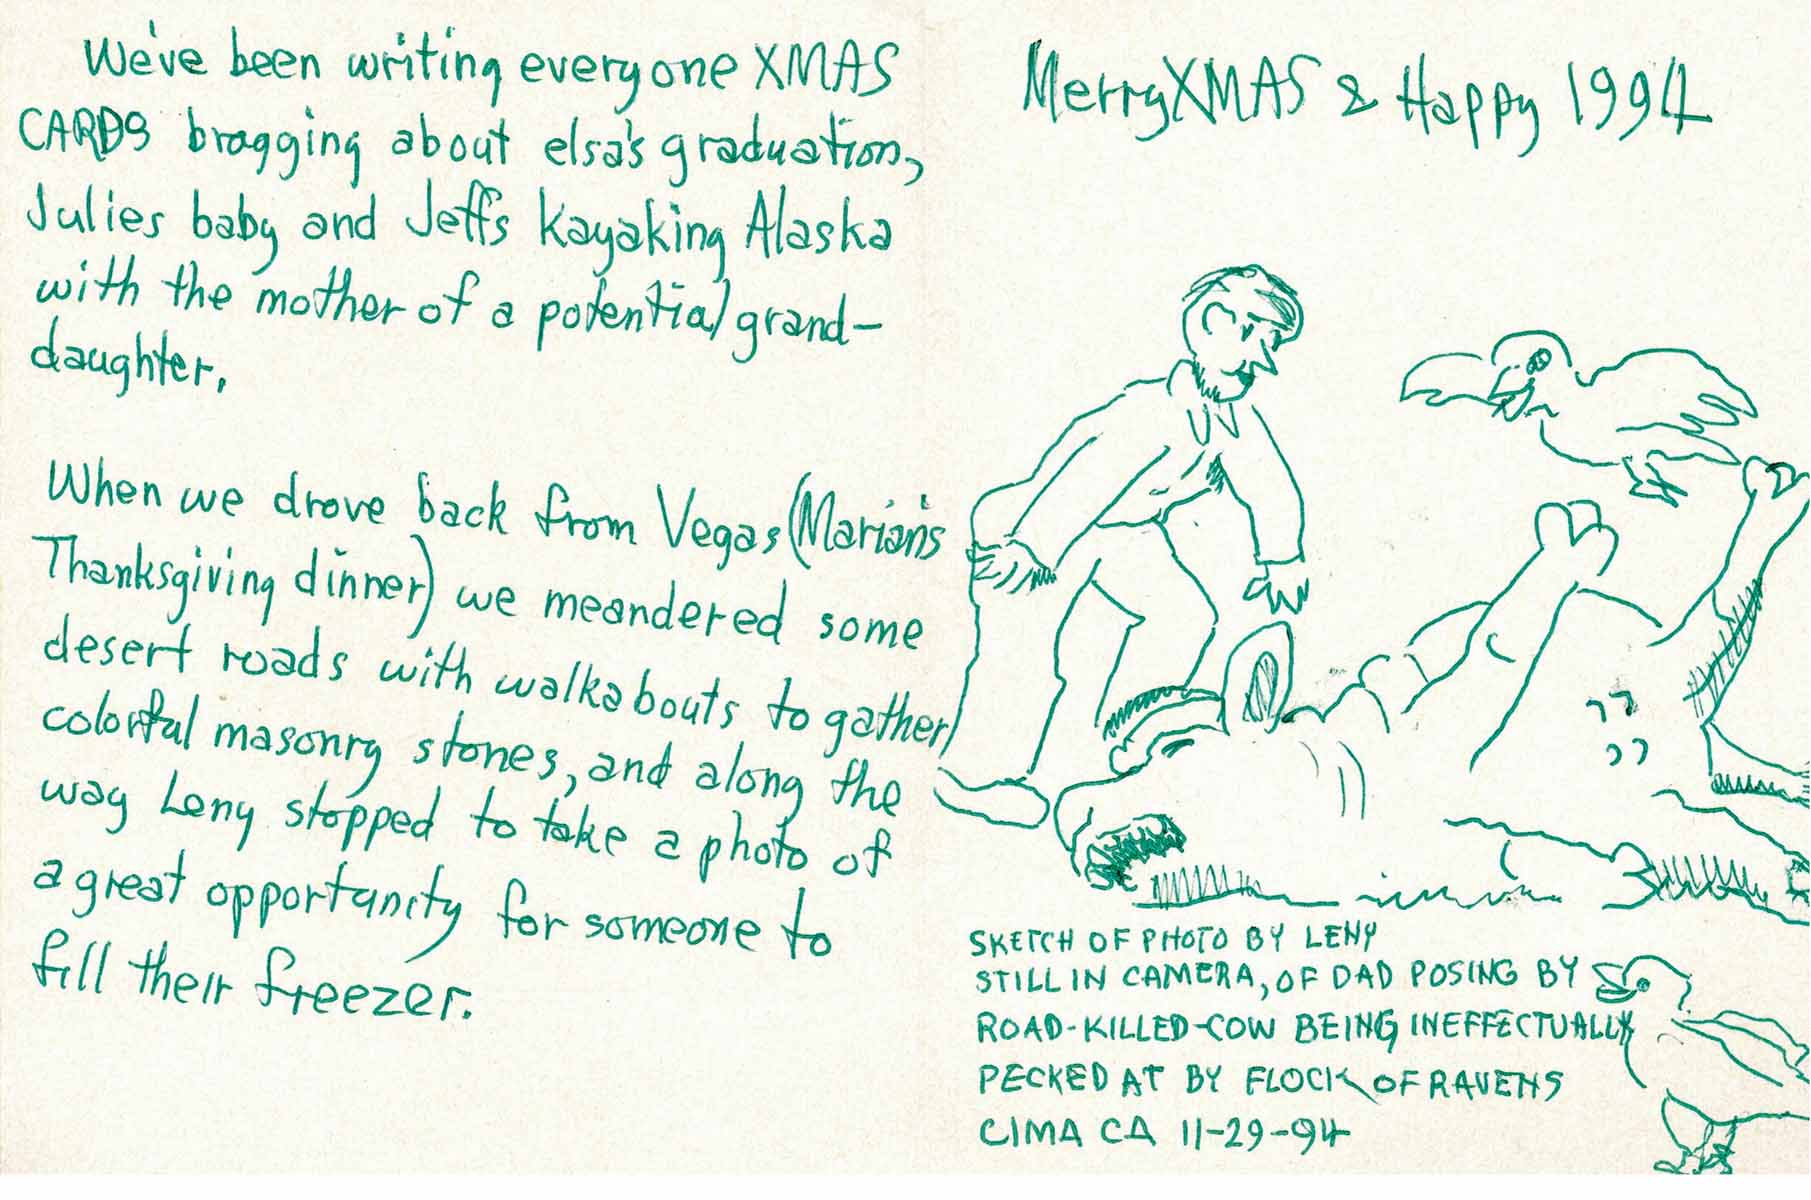 We've been writing everyone XMAS
CARDS bragging about elsa's graduation,
Julies baby and Jeff's kayaking Alaska
with the mother of a potential grand-
daughter.
When we drove back from Vegas (Marian's
Thanksgiving dinner) we meandered some
desert roads with walkabouts to gather
colorful masonry stones, and along the
way Leny stopped to take a photo of
a great opportunity for someone to
fill their freezer.
Merry XMAS & Happy 1994
SKETCH OF PHOTO BY LENY
STILL IN CAMERA, OF DAD POSING BY
ROAD-KILLED-COW BEING INEFFECTUALLY
PECKED AT BY FLOCK OF RAVENS
CIMA CA 11-29-94